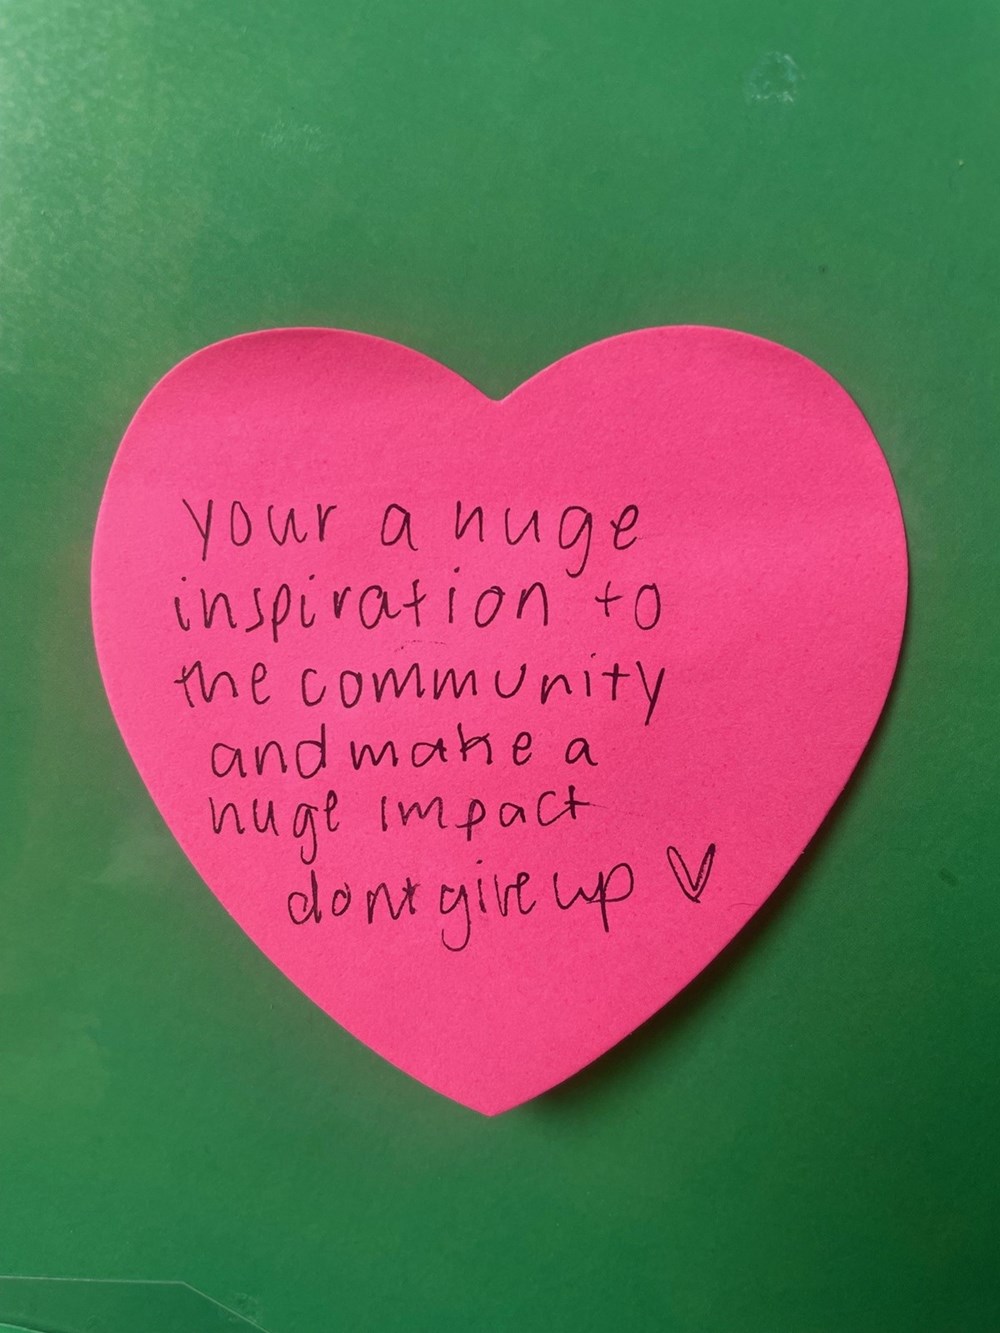 your a huge
inspiration to
the community
and make a
huge impact
dont give up ♡